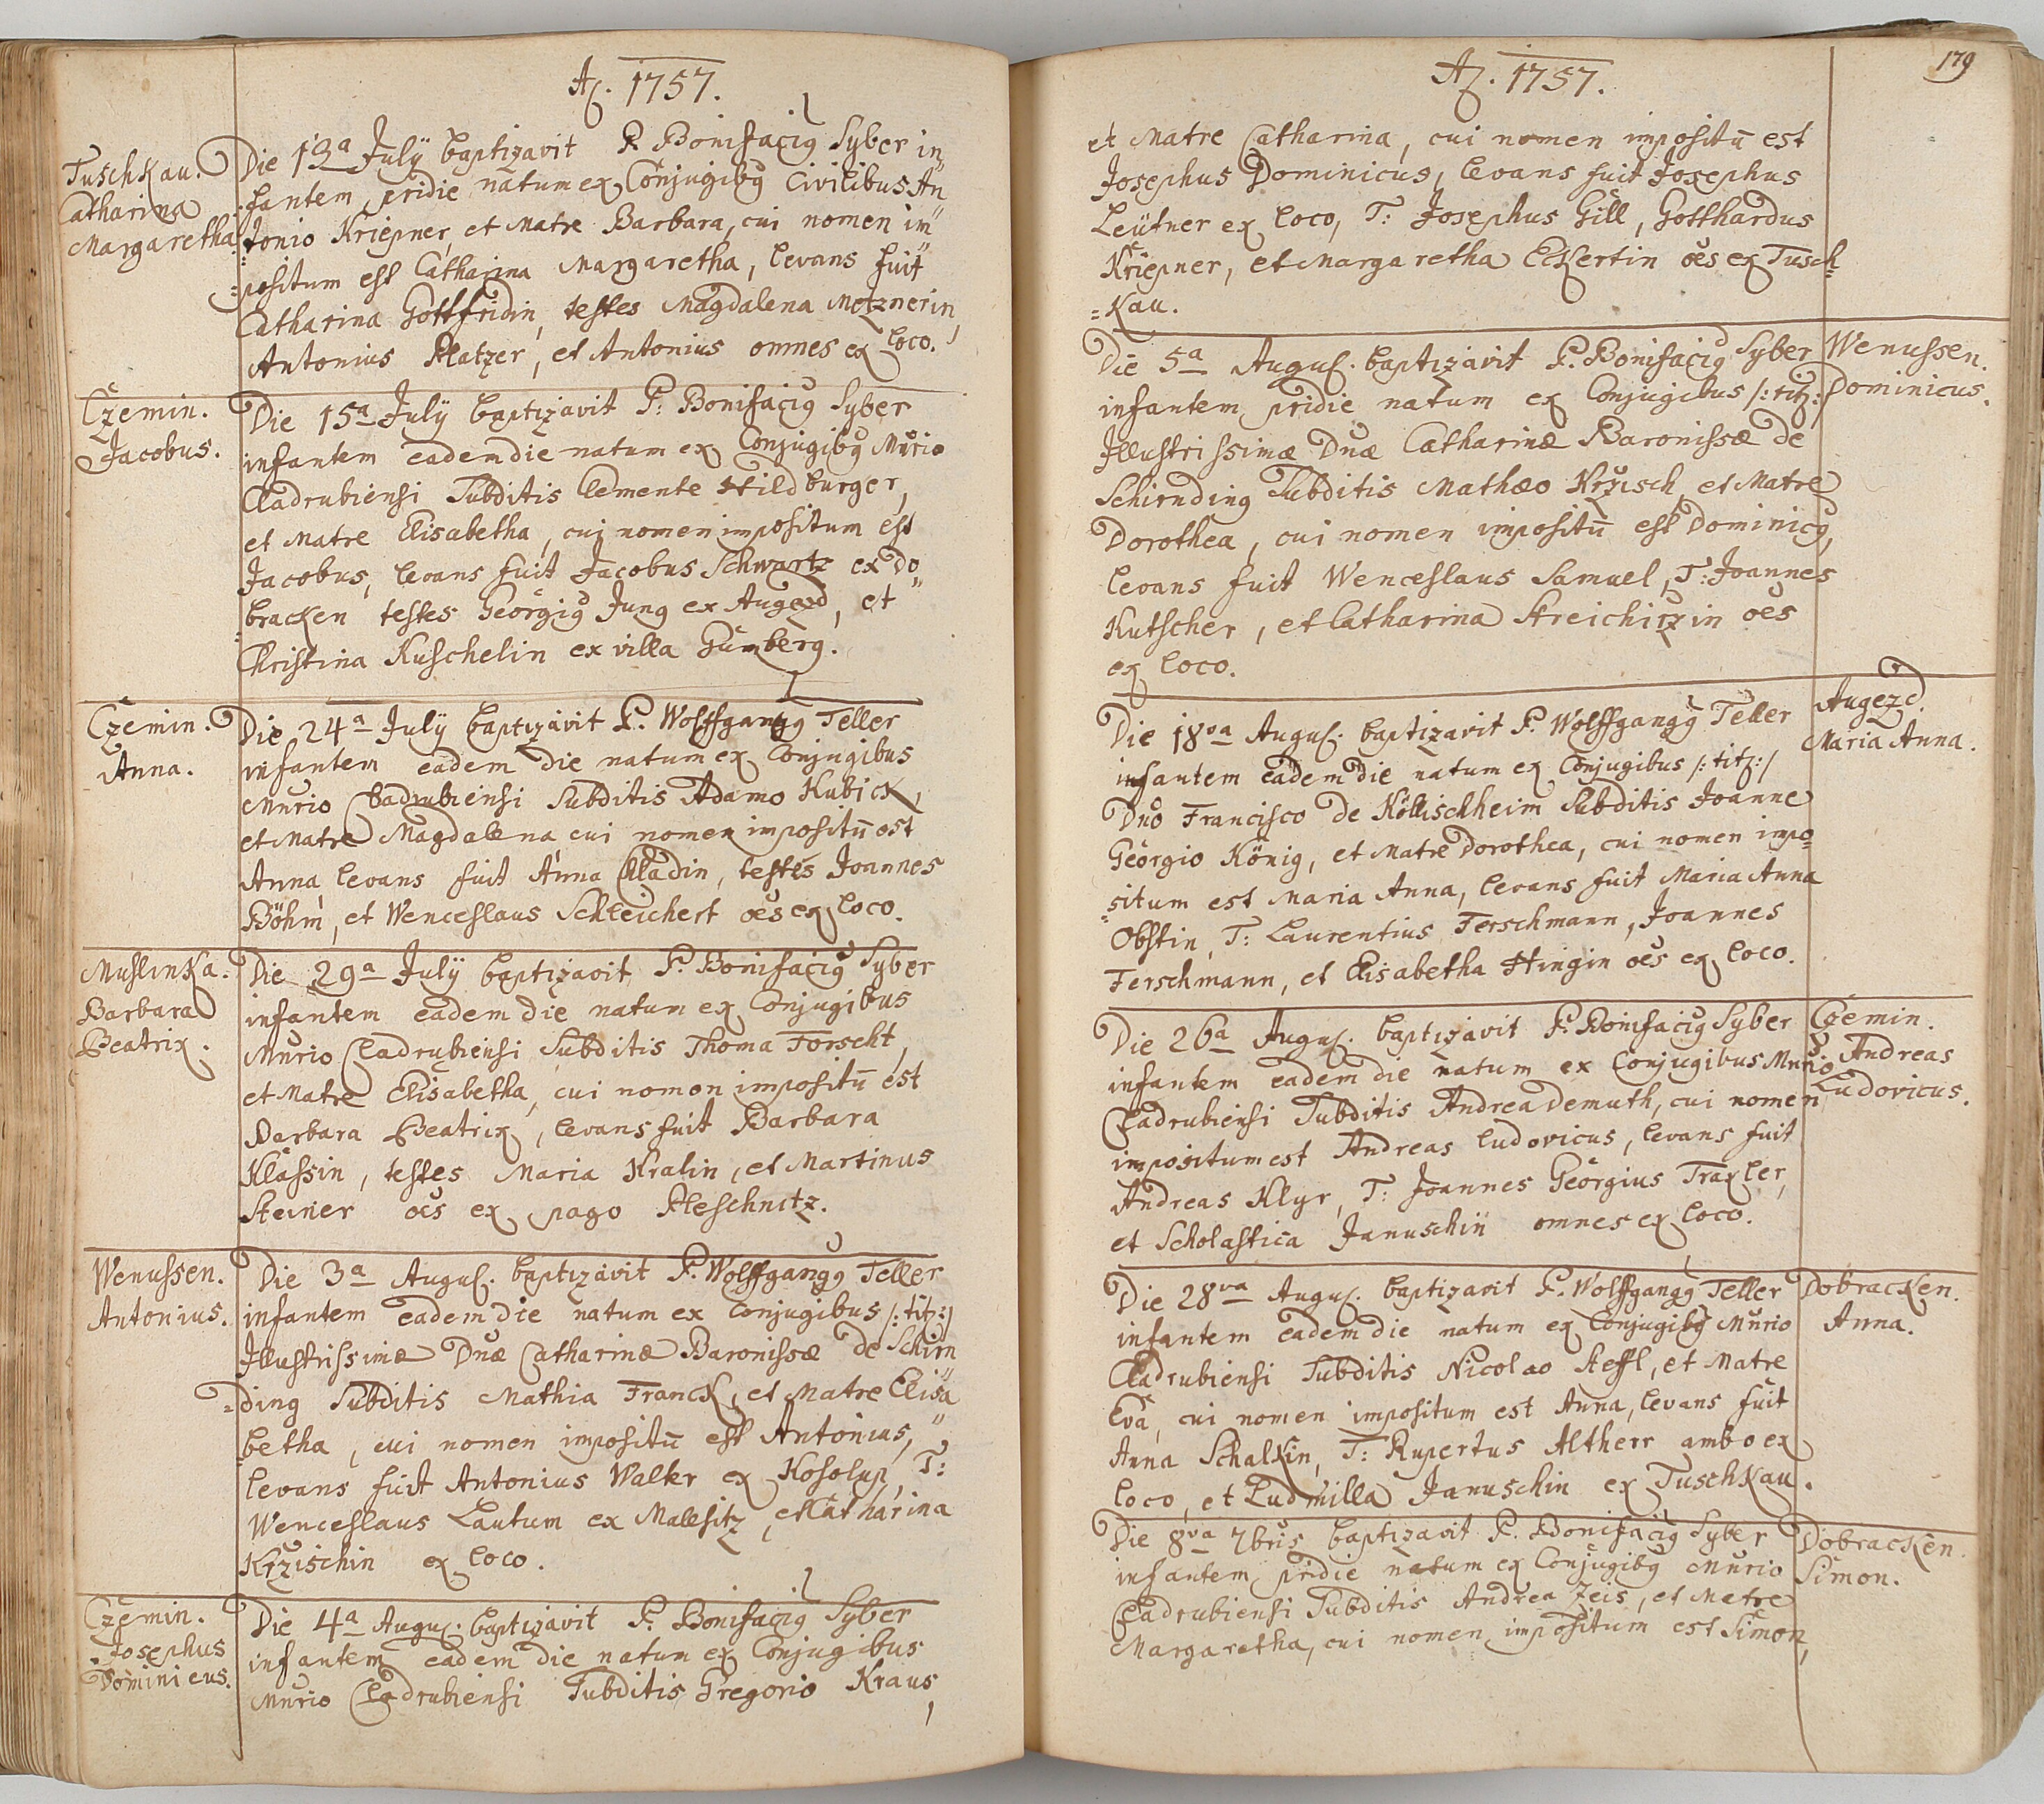 Aͦ. 1757.
Tuschkau.
Catharina
Margaretha
Die 13a Julÿ baptizavit P. Bonifaciꝰ Syber in
fantem pridie natum ex Conjugibꝰ Civilibus An
tonio Kriepner, et Matre Barbara, cui nomen im
positum est Catharina Margaretha, levans fuit
Catharina Gottfridin, testes Magdalena Metznerin,
Antonius Platzer, et Antonius omnes ex loco.
Czemin.
Jacobus.
Die 15a Julÿ baptizavit P: Bonifaciꝰ Syber
infantem eadem die natum ex Conjugibꝰ Mnrio
Cladrubiensi Subditis Clemente Hildburger,
et Matre Elisabetha, cui nomen impositum est
Jacobus, levans fuit Jacobus Schwartz ex Do
bracken testes Georgiꝰ Jung ex Augezd, et
Christina Kuschelin ex villa Gumberg.
Czemin.
Anna.
Die 24a Julÿ baptizavit P. Wolffgangꝰ Teller
infantem eadem die natum ex Conjugibus
Mnrio Cladrubiensi Subditis Adamo Kubick,
et Matre Magdalena cui nomen impositū est
Anna levans fuit Anna Cladin, testes Joannes
Böhm, et Wenceslaus Schleichert oēs ex loco.
Muslinka.
Barbara
Beatrix.
Die 29a Julÿ baptizavit P. Bonifaciꝰ Syber
infantem eadem die natum ex Conjugibus
Mnrio Cladrubiensi Subditis Thoma Forscht,
et Matre Elisabetha, cui nomen impositū est
Barbara Beatrix, levans fuit Barbara
Klassin, testes Maria Kralin, et Martinus
Steiner oēs ex pago Pleschnitz.
Wenussen.
Antonius.
Die 3a Augus. baptizavit P. Wolffgangꝰ Teller
infantem eadem die natum ex Conjugibus /: titz:/
Illustrissimæ Dnæ Catharinæ Baronissæ de Schirn
=ding Subditis Mathia Franck, et Matre Elisa
betha, cui nomen impositū est Antonius,
levans fuit Antonius Walter ex Kosolup, T:
Wenceslaus Lautum ex Mallesitz, et Catharina
Krzischin ex loco.
Czemin.
Josephus
Dominicus.
Die 4a Augus. baptizavit P. Bonifaciꝰ Syber
infantem eadem die natum ex Conjugibus
Mnrio Cladrubiensi Subditis Gregorio Kraus,
Aͦ. 1757.
179
et Matre Catharina, cui nomen impositū est
Josephus Dominicus, levans fuit Josephus
Leütner ex loco, T: Josephus Gill, Gotthardus
Kriepner, et Margaretha Eckertin oēs ex Tusch
=kau.
Die 5a Augus. baptizavit P. Bonifaciꝰ Syber
infantem pridie natum ex Conjugibus /: titz:/
Illustrissimæ Dnæ Catharinæ Baronissæ de
Schirnding Subditis Mathæo Krzisch, et Matre
Dorothea, cui nomen impositū est Dominicꝰ,
levans fuit Wenceslaus Samuel, T: Joannes
Kutscher, et Catharina Streichirzin oēs
ex loco.
Wenussen.
Dominicus.
Die 18va Augus. baptizavit P. Wolffgangꝰ Teller
infantem eadem die natum ex Conjugibus /: titz:/
Dno Francisco de Köllischheim Subditis Joanne
Georgio König, et Matre Dorothea, cui nomen impo
=situm est Maria Anna, levans fuit Maria Anna
Obstin, T: Laurentius Ferschmann, Joannes
Ferschmann, et Elisabetha Hingin oēs ex loco.
Augezd.
Maria Anna.
Die 26a Augus. baptizavit P. Bonifaciꝰ Syber
infantem eadem die natum ex Conjugibus Mnrio
Cladrubiensi Subditis Andrea Demuth, cui nomen
impositum est Andreas Ludovicus, levans fuit
Andreas Klyr, T: Joannes Georgius Traxler,
et Scholastica Januschin omnes ex loco.
Czemin.
Andreas
Ludovicus.
Die 28va Augus. baptizavit P. Wolffgangꝰ Teller
infantem eadem die natum ex Conjugibꝰ Mnrio
Cladrubiensi Subditis Nicolao Steffl, et Matre
Eva, cui nomen impositum est Anna, levans fuit
Anna Schalkin, T: Rupertus Altherr ambo ex
loco, et Ludmilla Januschin ex Tuschkau.
Dobracken.
Anna.
Die 8va 7bris baptizavit P. Bonifaciꝰ Syber
infantem pridie natum ex Conjugibꝰ Mnrio
Cladrubiensi Subditis Andrea Zeis, et Matre
Margaretha, cui nomen impositum est Simon,
Dobracken.
Simon.